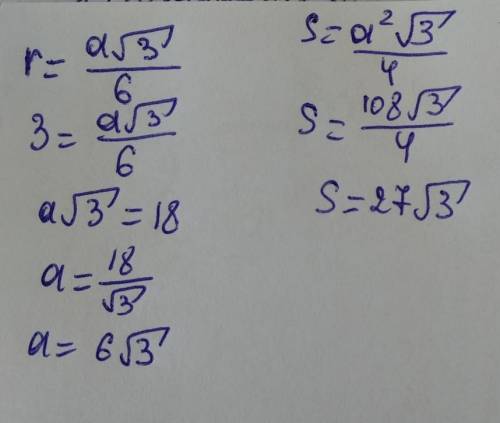 r = a√3/6
3 = a√3/6
a√3 = 18
a = 18/√3
a = 6√3
S = a²√3/4
S = 108√3/4
S = 27√3